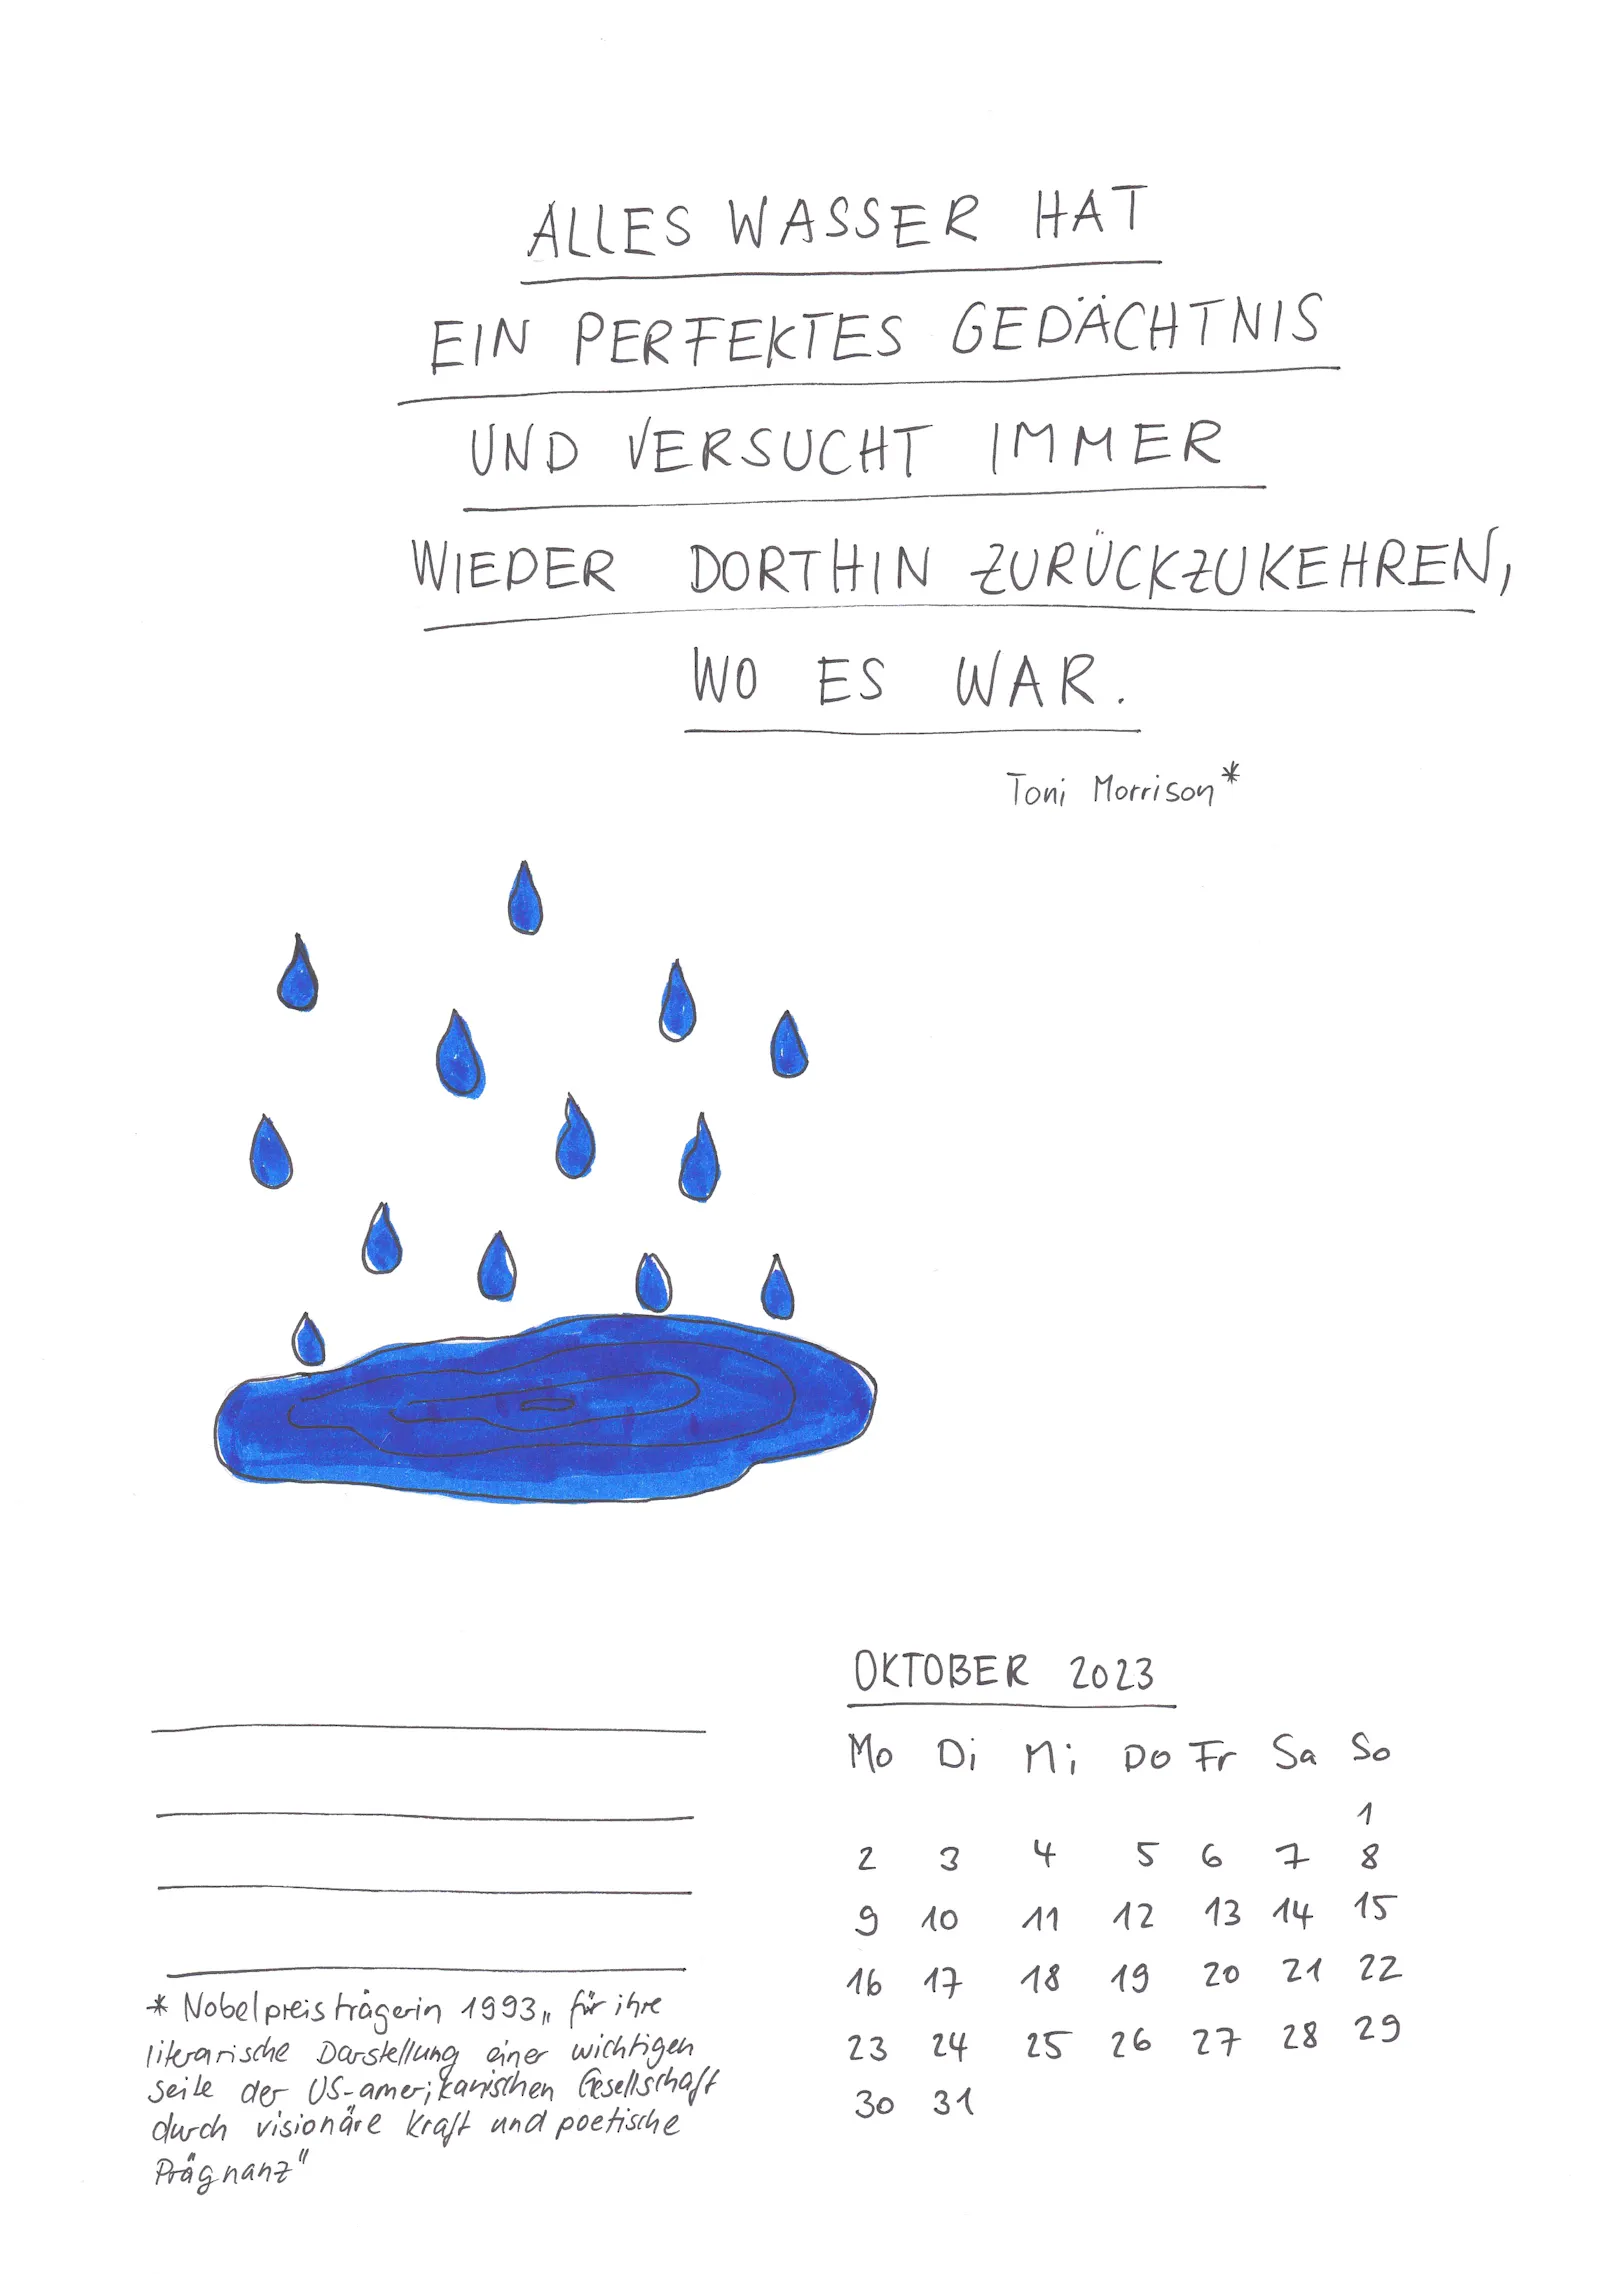 ALLES WASSER HAT
EIN PERFEKTES GEDÄCHTNIS
UND VERSUCHT IMMER
WIEDER DORTHIN ZURÜCKZUKEHREN,
WO ES WAR.
Toni Morrison*
OKTOBER 2023
Mo Di Mi Do Fr Sa So
1
2 3 4 5 6 7 8
9 10 11 12 13 14 15
16 17 18 19 20 21 22
23 24 25 26 27 28 29
30 31
* Nobelpreisträgerin 1993 „für ihre
literarische Darstellung einer wichtigen
Seite der US-amerikanischen Gesellschaft
durch visionäre Kraft und poetische
Prägnanz"